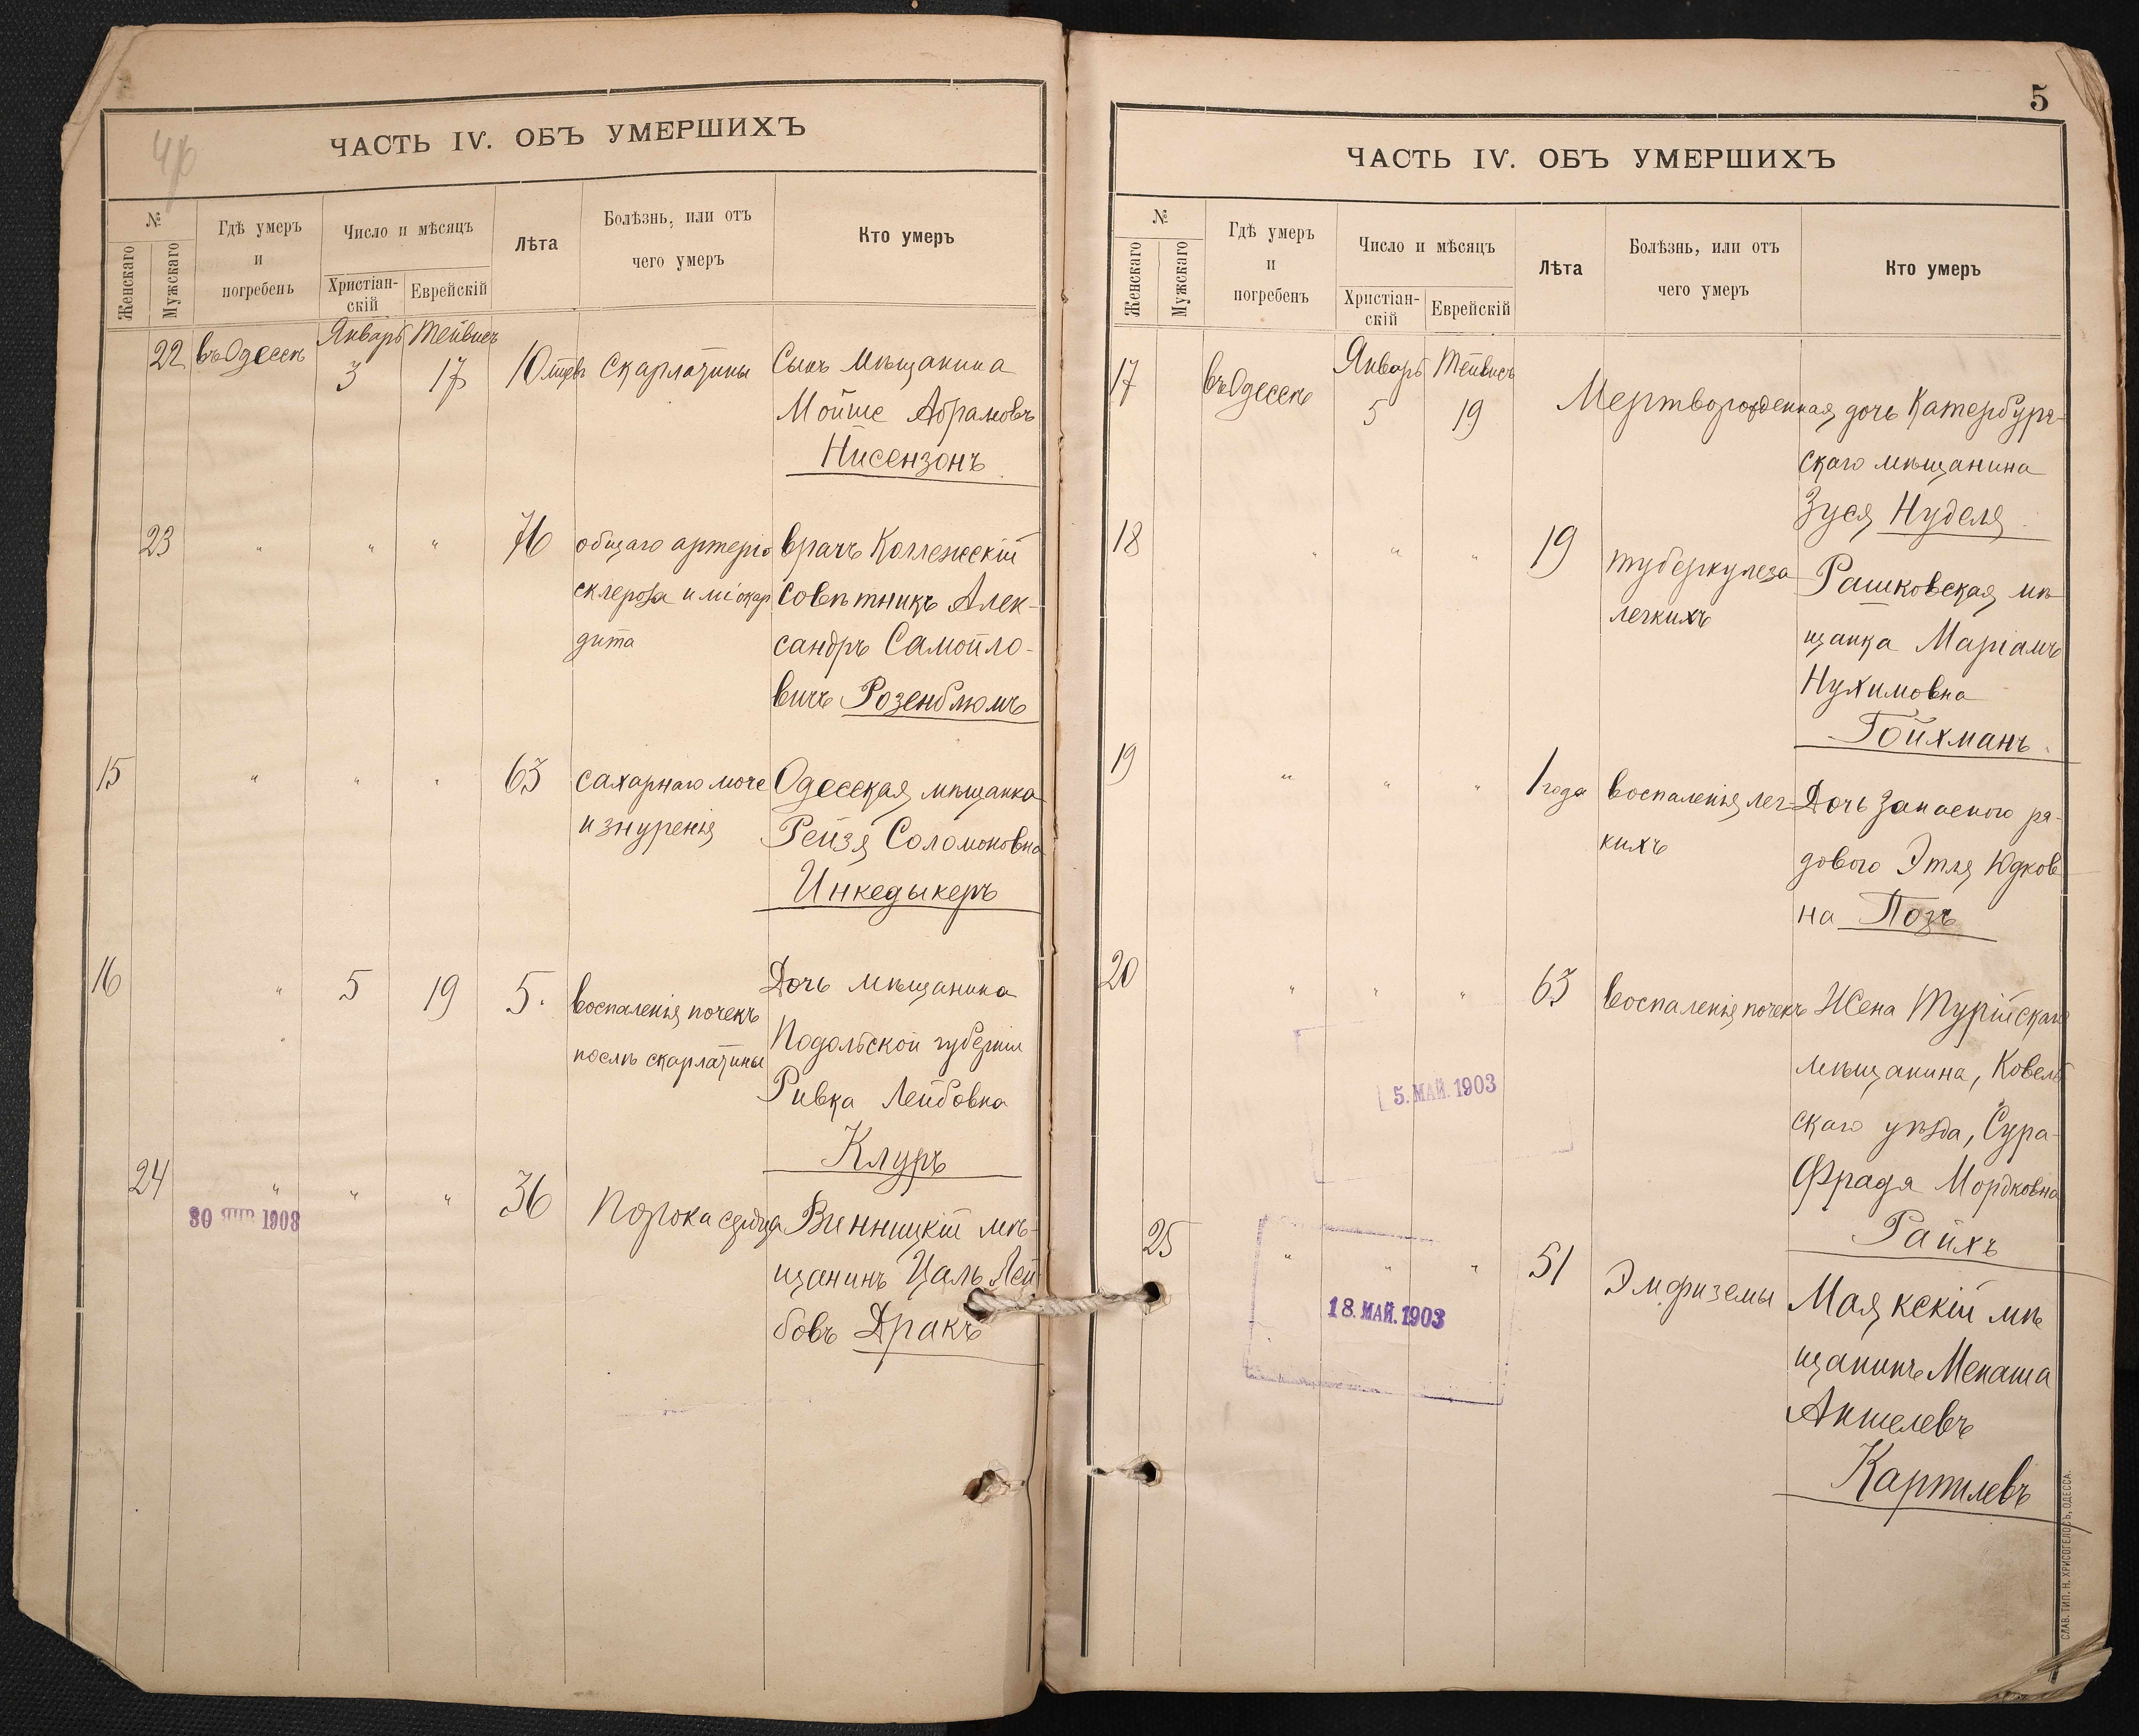 ЧАСТЬ IV. ОБЪ УМЕРШИХЪ
№
Женскаго
Мужскаго
Гдѣ умеръ
и
погребенъ
Число и мѣсяцъ
Христіан-
скій
Еврейскій
Лѣта
Болѣзнь, или отъ
чего умеръ
Кто умеръ
22 въ Одессѣ Январь 3 Тейвисъ 17 Скарлатины Сынъ мѣщанина
Мойше Абрамовъ
Нисензонъ
23 " " " 76 общаго артеріо врачъ Коллежскій
склероза и міокар совѣтникъ Алек-
дита сандръ Самойло-
вичъ Розенблюмъ
15 " " " 63 сахарнаго моче Одесская мѣщанка
изнуренія Рейзя Соломоновна
Инкедыкеръ
16 " 5 19 5. воспаленія почекъ Дочь мѣщанина
послѣ скарлатины Подольской губерніи
Ривка Лейбовна
Клуръ
24 " " " 36 Порока сердца Винницкій мѣ-
щанинъ Цаль Лей
бовъ Дракъ
30 ЯНВ 1903
5
ЧАСТЬ IV. ОБЪ УМЕРШИХЪ
№
Женскаго
Мужскаго
Гдѣ умеръ
и
погребенъ
Число и мѣсяцъ
Христіан-
скій
Еврейскій
Лѣта
Болѣзнь, или отъ
чего умеръ
Кто умеръ
17 въ Одессѣ Январь 5 Тейвисъ 19 Мертворожденная дочь Катербург-
скаго мѣщанина
Зуся Нуделя
18 " " " 19 туберкулеза Рашковская мѣ
легкихъ щанка Маріамъ
Нухимовна
Гойхманъ
19 " " " 1 года воспаленія лег- Дочь запасного ря-
кихъ дового Этля Юдков
на Позъ
20 " " " 63 воспаленія почекъ Жена Турійскаго
мѣщанина, Ковель
скаго уѣзда, Сура-
Фрадя Мордковна
Райхъ
5. МАЙ. 1903
25 " " " 51 Эмфиземы Маякскій мѣ
щанинъ Менаша
Аншелевъ
Картилевъ
18. МАЙ. 1903
СЛАВ. ТИП. Н. ХРИСОГЕЛОСЪ, ОДЕССА.